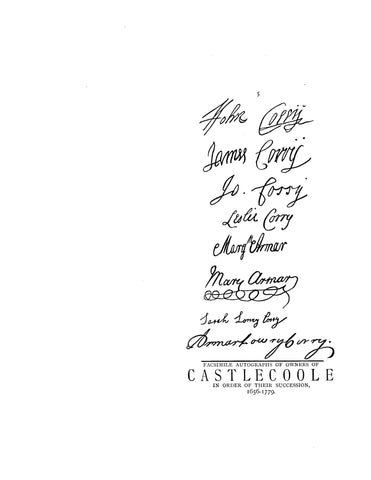 5
John Corry
James Corry
Jo. Corry
Leslie Corry
Marg^t Armar
Mary Armar
Sarah Lowry Corry
Armar Lowry Corry.
FACSIMILE AUTOGRAPHS OF OWNERS OF
CASTLECOOLE
IN ORDER OF THEIR SUCCESSION,
1656-1779.